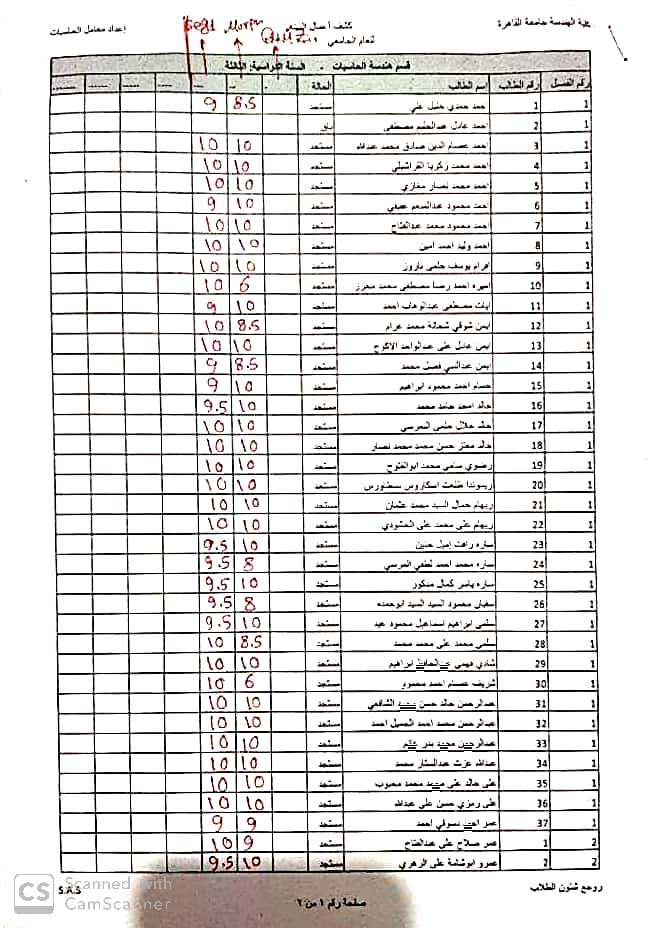 كلية الهندسة جامعة القاهرة
كشف أعمال السنه
إعداد معامل الحاسبات
للعام الجامعي
قسم هندسة الحاسبات - السنة الدراسية: الثالثة
رقم الفصل رقم الطالب إسم الطالب الحالة
1 1 احمد حمدي خليل علي مستجد 8.5 9
1 2 احمد عادل عبدالحليم مصطفى باق
1 3 احمد عصام الدين صادق محمد عبدالله مستجد 10 10
1 4 احمد محمد زكريا القراشيلي مستجد 10 10
1 5 احمد محمد نصار مغازي مستجد 10 10
1 6 احمد محمود عبدالمنعم عفيفي مستجد 10 9
1 7 احمد محمود محمد عبدالفتاح مستجد 10 10
1 8 احمد وليد احمد امين مستجد 10 10
1 9 افرام يوسف حلمي باروز مستجد 10 10
1 10 اميره احمد رضا مصطفى محمد محرز مستجد 6 10
1 11 ايات مصطفى عبدالوهاب احمد مستجد 10 9
1 12 ايمن شوقي شحاتة محمد عرام مستجد 8.5 10
1 13 ايمن عادل على عبدالواحد الاكوح مستجد 10 10
1 14 ايمن عبدالنبي فضل محمد مستجد 8.5 9
1 15 حسام احمد محمود ابراهيم مستجد 10 9
1 16 خالد امجد حامد محمد مستجد 10 9.5
1 17 خالد جلال حلمي المرسي مستجد 10 10
1 18 خالد معتز حسن محمد محمد نصار مستجد 10 10
1 19 رضوي سامي محمد ابوالفتوح مستجد 10 10
1 20 ريموندا طلعت اسكاروس بسطاورس مستجد 10 10
1 21 ريهام جمال السيد محمد عثمان مستجد 10 10
1 22 ريهام على محمد على الحشودي مستجد 10 10
1 23 ساره رافت إميل حنين مستجد 10 9.5
1 24 ساره محمد احمد لطفي المرسي مستجد 8 9.5
1 25 ساره ياسر كمال مدكور مستجد 10 9.5
1 26 سفيان محمود السيد السيد ابوحمده مستجد 8 9.5
1 27 سلمى ابراهيم اسماعيل محمود عيد مستجد 10 9.5
1 28 سلمى محمد على محمد محمد مستجد 8.5 10
1 29 شادي فهمي عبدالحافظ ابراهيم مستجد 10 10
1 30 شريف عصام احمد محمود مستجد 6 10
1 31 عبدالرحمن خالد حسن محمد الشافعي مستجد 10 10
1 32 عبدالرحمن محمد احمد الجميل احمد مستجد 10 10
1 33 عبدالرحمن محمد بدر غانم مستجد 10 10
1 34 عبدالله عزت عبدالستار محمد مستجد 10 10
1 35 على خالد على محمد محمد محبوب مستجد 10 10
1 36 على رمزي حسن علي عبدالله مستجد 10 10
1 37 عمر احمد دسوقي احمد مستجد 9 9
2 1 عمر صلاح على عبدالفتاح مستجد 9 10
2 2 عمرو ابوشامة على الزهري مستجد 10 9.5
روجع شئون الطلاب
S.A.S
صفحة رقم ١ من ٢
CS Scanned with
CamScanner